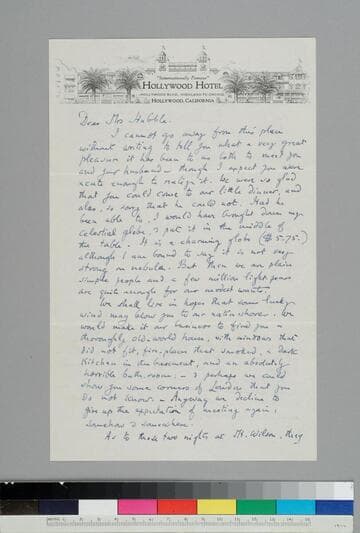 "Internationally Famous"
HOLLYWOOD HOTEL
HOLLYWOOD BLVD., HIGHLAND TO ORCHID
HOLLYWOOD, CALIFORNIA
Dear Mrs Hubble.
I cannot go away from this place
without writing to tell you what a very great
pleasure it has been to us both to meet you
and your husband – though I expect you were
acute enough to realize it. We were so glad
that you could come to our little dinner, and
also, so sorry that he could not. Had he
been able to, I would have brought down my
celestial globe, & put it in the middle of
the table. It is a charming globe ($5.75.)
although I am bound to say it is not very
strong on nebulae. But then we are plain
simple people and a few million light years
are quite enough for our modest wants.
We shall live in hopes that some lucky
wind may blow you to our native shores. We
would make it our business to find you a
thoroughly old-world house, with windows that
did not fit, fire-places that smoked, a dark
kitchen in the basement, and an absolutely
horrible bath-room. – & perhaps we could
show you some corners of London that you
do not know. – Anyway we decline to
give up the expectation of meeting again,
somehow & somewhere.
As to those two nights at Mt. Wilson, they